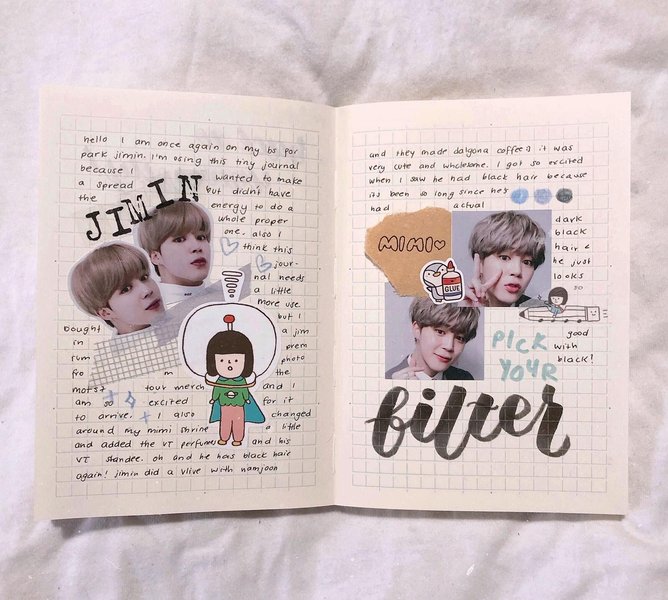 hello I am once again on my bs for
park jimin. I'm using this tiny journal
because I wanted to make
a spread but didn't have
the energy to do a
JIMIN
whole proper
one. also I
think this
jour-
nal needs
a little
more use.
but I
bought a jim
in prem
rum photo
fro m the
mots7 tour merch and I
am so excited for it
to arrive. I also changed
around my mimi shrine a little
and added the VT perfumes and his
VT standee. oh and he has black hair
again! jimin did a vlive with namjoon
and they made dalgona coffee & it was
very cute and wholesome. I got so excited
when I saw he had black hair because
it's been so long since he's
had actual
dark
black
hair &
he just
looks
so
good
with
black!
MIMI
GLUE
PICK
YOUR
filter